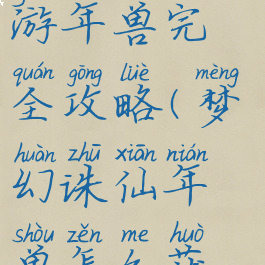 游年兽完
quán gōng lüè mèng
全攻略(梦
huàn zhū xiān nián
幻诛仙年
shòu zěn me huò
兽怎么获